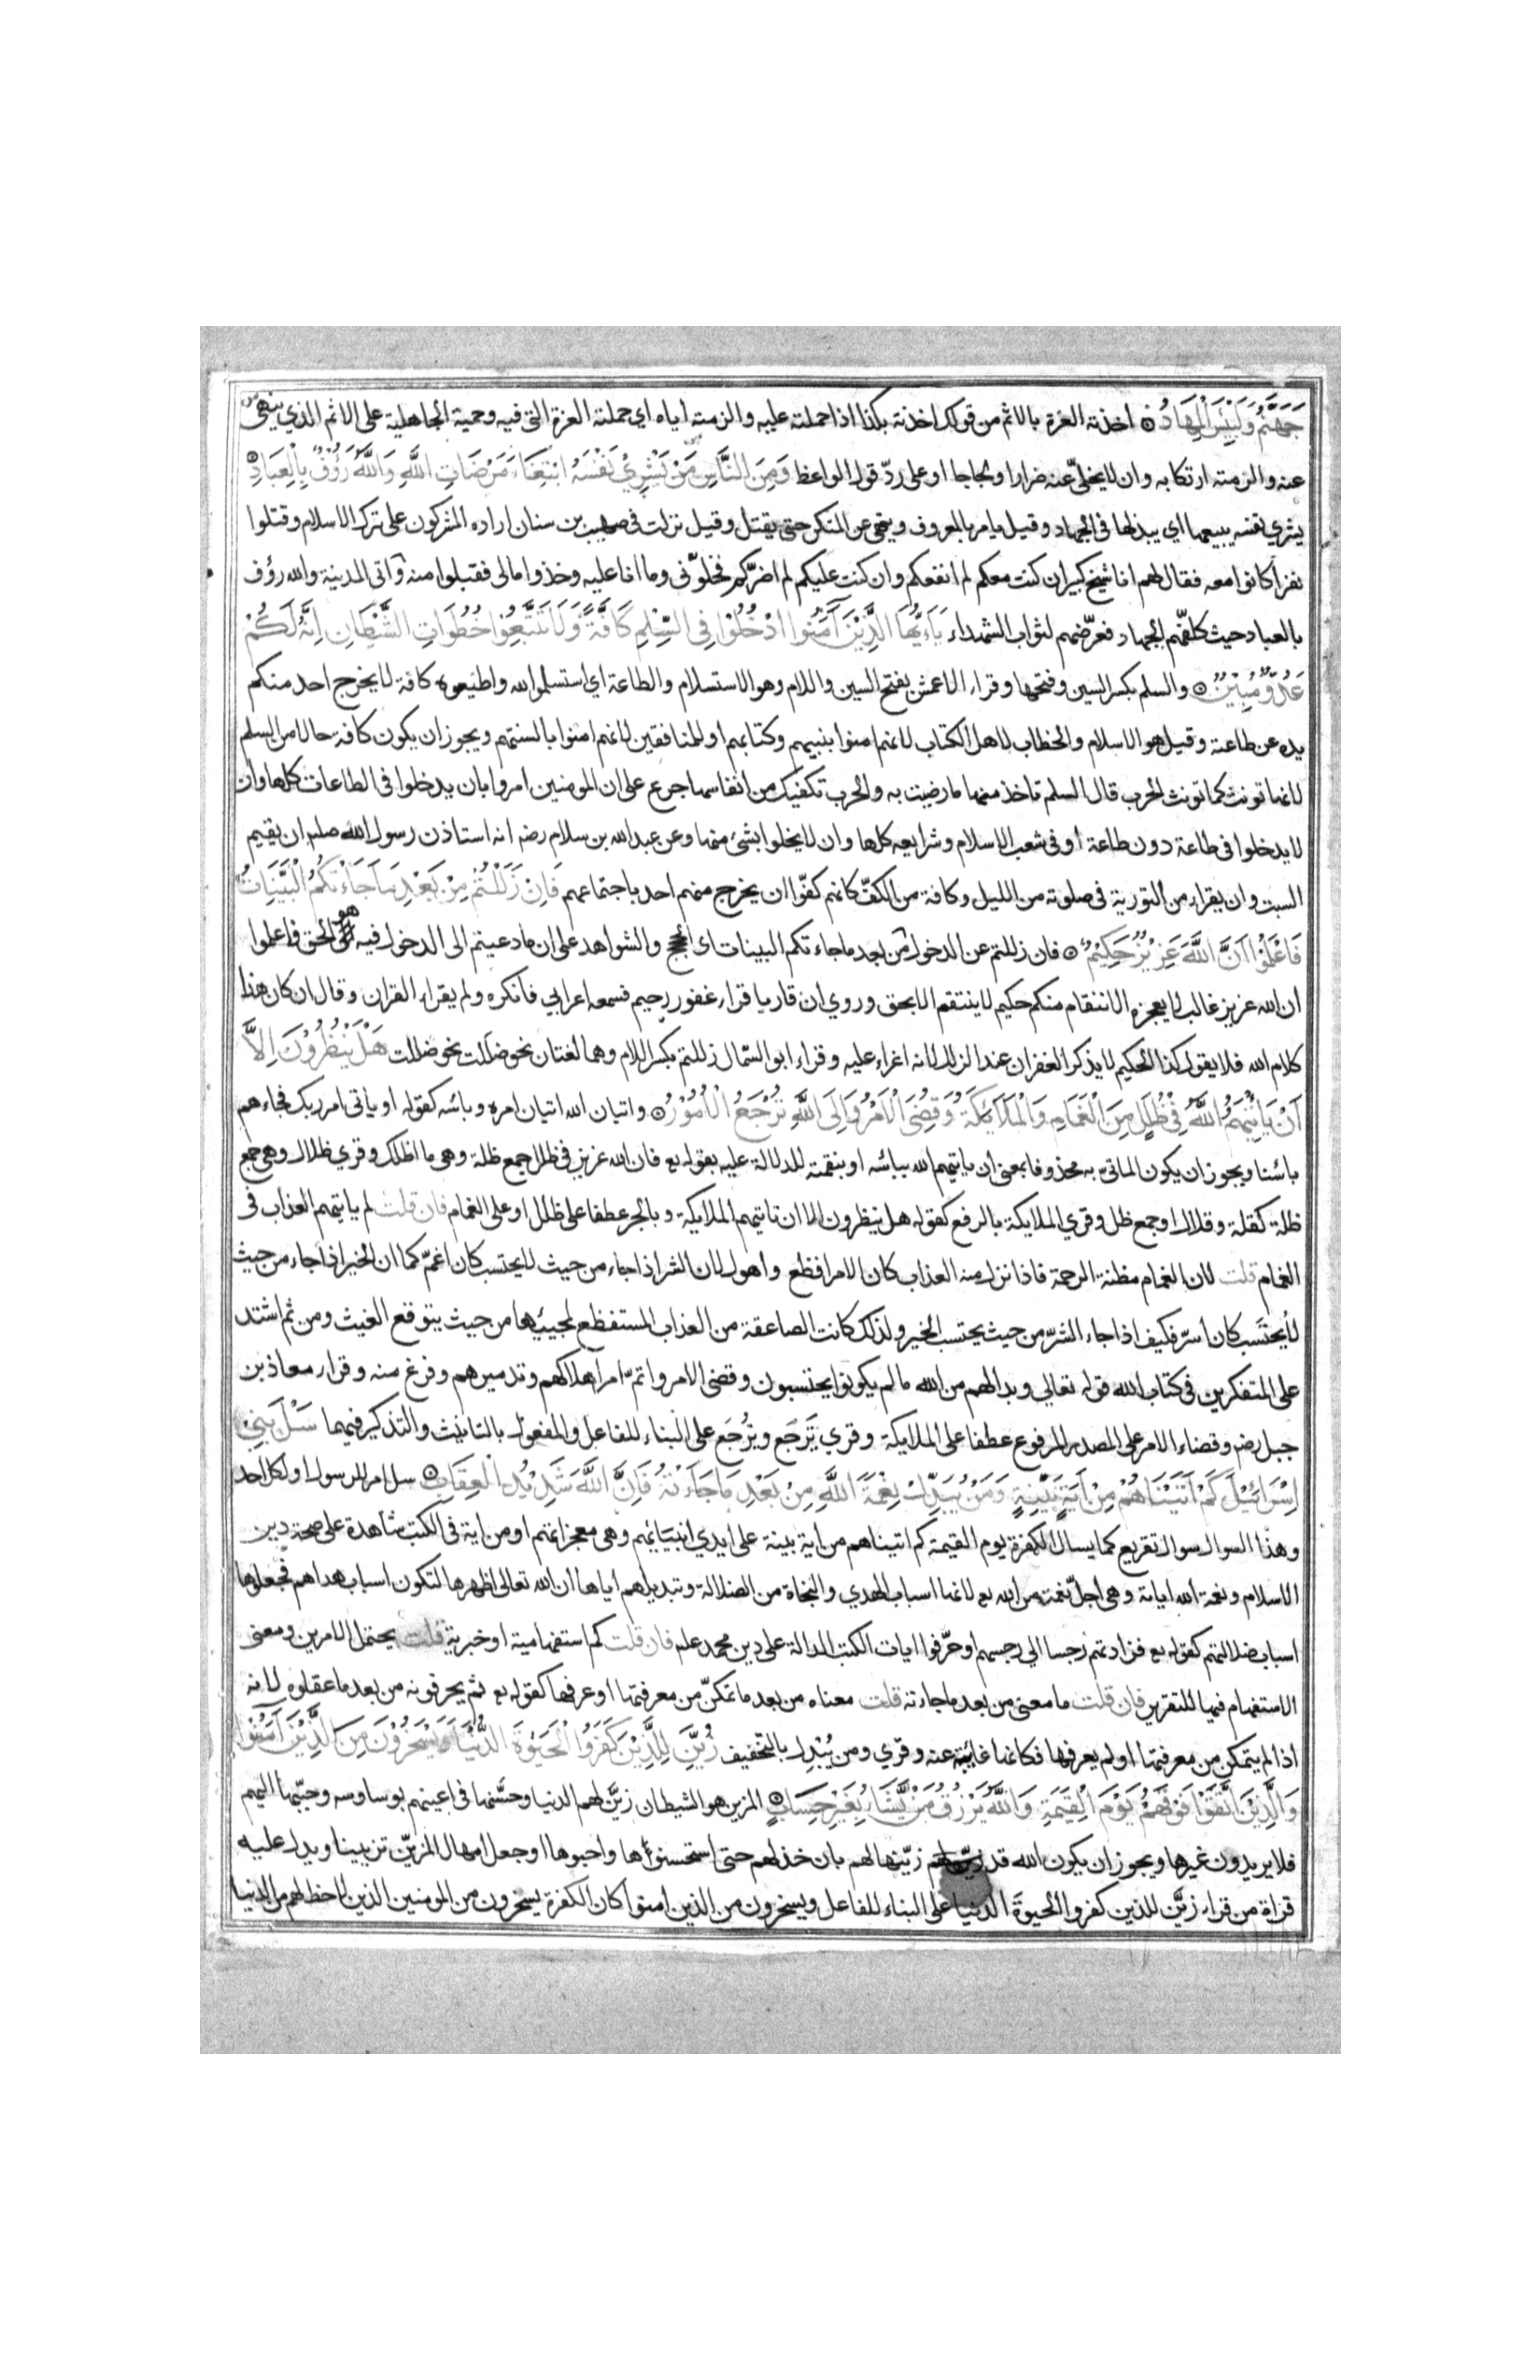 جَهَنَّمُ وَلَبِئْسَ الْمِهَادُ ۞ اخذته العزة بالاثم من قولك اخذته بكذا اذا حملته عليه والزمته اياه اي حملته العزة التي فيه وحمية الجاهلية على الاثم الذي ينهى
عنه والزمته ارتكابه وان لا يخلّي عنه ضرارا ولجاجا او على ردّ قول الواعظ وَمِنَ النَّاسِ مَنْ يَشْرِيْ نَفْسَهُ ابْتِغَاءَ مَرْضَاتِ اللَّهِ وَاللَّهُ رَؤُفٌ بِالْعِبَادِ ۞
يشري نفسه يبيعها اي يبذلها في الجهاد وقيل يامر بالمعروف وينهى عن المنكر حتى يقتل وقيل نزلت في صهيب بن سنان اراده المشركون على ترك الاسلام وقتلوا
نفرا كانوا معه فقال لهم انا شيخ كبير ان كنت معكم لم انفعكم وان كنت عليكم لم اضرّكم فخلوّني وما انا عليه وخذوا مالي فقبلوا منه واتى المدينة والله رؤف
بالعباد حيث كلفّهم الجهاد فعرّضهم لثواب الشهداء يَاءَيُّهَا الَّذِيْنَ آمَنُوا ادْخُلُوا فِي السِّلْمِ كَافَّةً وَلَا تَتَّبِعُوا خُطُوَاتِ الشَّيْطَانِ اِنَّهُ لَكُمْ
عَدُوٌّ مُبِيْنٌ ۞ والسلم بكسر السين وفتحها وقراء الاعمش بفتح السين واللام وهو الاستسلام والطاعة اي استسلموا لله واطيعوه كافة لا يخرج احد منكم
يده عن طاعة وقيل هو الاسلام والخطاب لاهل الكتاب لانهم امنوا بنبيهم وكتابهم او للمنافقين لانهم امنوا بالسنتهم ويجوز ان يكون كافة حالا من السلم
لانها تونث كما تونث الحرب قال السلم تاخذ منها ما رضيت به والحرب تكفيك من انفاسها جرع على ان المومنين امروا بان يدخلوا في الطاعات كلها وان
لا يدخلوا في طاعة دون طاعة او في شعب الاسلام وشرايعه كلها وان لا يخلوا بشئ منها وعن عبد الله بن سلام رضه انه استاذن رسول الله صلم ان يقيم
السبت وان يقراء من التورية في صلوته من الليل وكافة من الكفّ كانهم كفّوا ان يخرج منهم احد باجتماعهم فَاِنْ زَلَلْتُمْ مِنْ بَعْدِ مَا جَاءَتْكُمُ الْبَيِّنَاتُ
فَاعْلَمُوْا اَنَّ اللَّهَ عَزِيْزٌ حَكِيْمٌ ۞ فان زللتم عن الدخول من بعد ما جاءتكم البينات اى الحجج والشواهد على ان ما دعيتم الى الدخول فيه هو الحق فاعلموا
ان الله عزيز غالب لا يعجزه الانتقام منكم حكيم لا ينتقم الا بحق وروي ان قاريا قراء غفور رحيم فسمعه اعرابي فانكره ولم يقراء القران وقال ان كان هذا
كلام الله فلا يقول كذا الحكيم لا يذكر الغفران عند الزلل لانه اغراء عليه وقراء ابو السّمال زللتم بكسر اللام وهما لغتان نحو ضللت نحو ضللت هَلْ يَنْظُرُوْنَ اِلَّا
اَنْ يَأْتِيَهُمُ اللَّهُ فِيْ ظُلَلٍ مِنَ الْغَمَامِ وَالْمَلَائِكَةُ وَقُضِيَ الْاَمْرُ وَاِلَى اللَّهِ تُرْجَعُ الْاُمُوْرُ ۞ واتيان الله اتيان امره وباسه كقوله او ياتي امر ربك فجاءهم
باسنا ويجوز ان يكون الماتيّ به محذوفا بمعنى ان ياتيهم الله بباسه او بنقمته للدلالة عليه بقوله تع فان الله عزيز في ظلل جمع ظلة وهي ما اظلك وقري ظلال وهي جمع
ظلة كقلة وقلال او جمع ظل وقري الملايكة بالرفع كقوله هل ينظرون الا ان تاتيهم الملايكة وبالجر عطفا على ظلل او على الغمام فان قلت لم ياتيهم العذاب في
الغمام قلت لان الغمام مظنة الرحمة فاذا نزل منه العذاب كان الامر افظع واهول لان الشر اذا جاء من حيث لا يحتسب كان اغمّ كما ان الخير اذا جاء من حيث
لا يحتسب كان اسرّ فكيف اذا جاء الشرّ من حيث يحتسب الخير ولذلك كانت الصاعقة من العذاب المستفظع لمجيئها من حيث يتوقع الغيث ومن ثم اشتد
على المتفكرين في كتاب الله قوله تعالي وبدا لهم من الله ما لم يكونوا يحتسبون وقضي الامر واتمّ امر اهلاكهم وتدميرهم وفرغ منه وقراء معاذ بن
جبل رضه وقضاء الامر على المصدر المرفوع عطفا على الملايكة وقري تَرجع ويُرجَع على البناء للفاعل والمفعول بالتانيث والتذكير فيهما سَلْ بَنِيْ
اِسْرَائِيْلَ كَمْ آتَيْنَاهُمْ مِنْ آيَةٍ بَيِّنَةٍ وَمَنْ يُبَدِّلْ نِعْمَةَ اللَّهِ مِنْ بَعْدِ مَا جَاءَتْهُ فَاِنَّ اللَّهَ شَدِيْدُ الْعِقَابِ ۞ سل امر للرسول او لكل احد
وهذا السوال سوال تقريع كما يسال الكفرة يوم القيمة كم اتيناهم من اية بينة على ايدي انبيائهم وهي معجزاتهم او من اية في الكتب شاهدة على صحة دين
الاسلام ونعمة الله اياته وهي اجلّ نعمة من الله تع لانها اسباب الهدي والنجاة من الضلالة وتبديلهم اياها ان الله تعالى اظهرها لتكون اسباب هداهم فجعلوها
اسباب ضلالتهم كقوله تع فزادتهم رجسا الي رجسهم او حرّفوا ايات الكتب الدالة على دين محمد علم فان قلت كم استفهامية او خبرية قلت يحتمل الامرين ومعنى
الاستفهام فيها للتقرير فان قلت ما معنى من بعد ما جاءته قلت معناه من بعد ما تمكنّ من معرفتها او عرفها كقوله تع ثم يحرفونه من بعد ما عقلوه لانه
اذا لم يتمكن من معرفتها او لم يعرفها فكانها غايبة عنه وقري ومن يُبْدِل بالتخفيف زُيِّنَ لِلَّذِيْنَ كَفَرُوا الْحَيٰوةُ الدُّنْيَا وَيَسْخَرُوْنَ مِنَ الَّذِيْنَ آمَنُوْا
وَالَّذِيْنَ اتَّقَوْا فَوْقَهُمْ يَوْمَ الْقِيٰمَةِ وَاللَّهُ يَرْزُقُ مَنْ يَّشَاءُ بِغَيْرِ حِسَابٍ ۞ المزين هو الشيطان زيّن لهم الدنيا وحسّنها في اعينهم بوساوسه وحبّبها اليهم
فلا يريدون غيرها ويجوز ان يكون الله قد زيّنها لهم بان خذلهم حتى استحسنوها واحبوها او جعل امهال المزيّن تزيينا ويدل عليه
قراة من قراء زيَّن للذين كفروا الحيوةَ الدنيا على البناء للفاعل ويسخرون من الذين امنوا كان الكفرة يسخرون من المومنين الذين لا حظ لهم من الدنيا